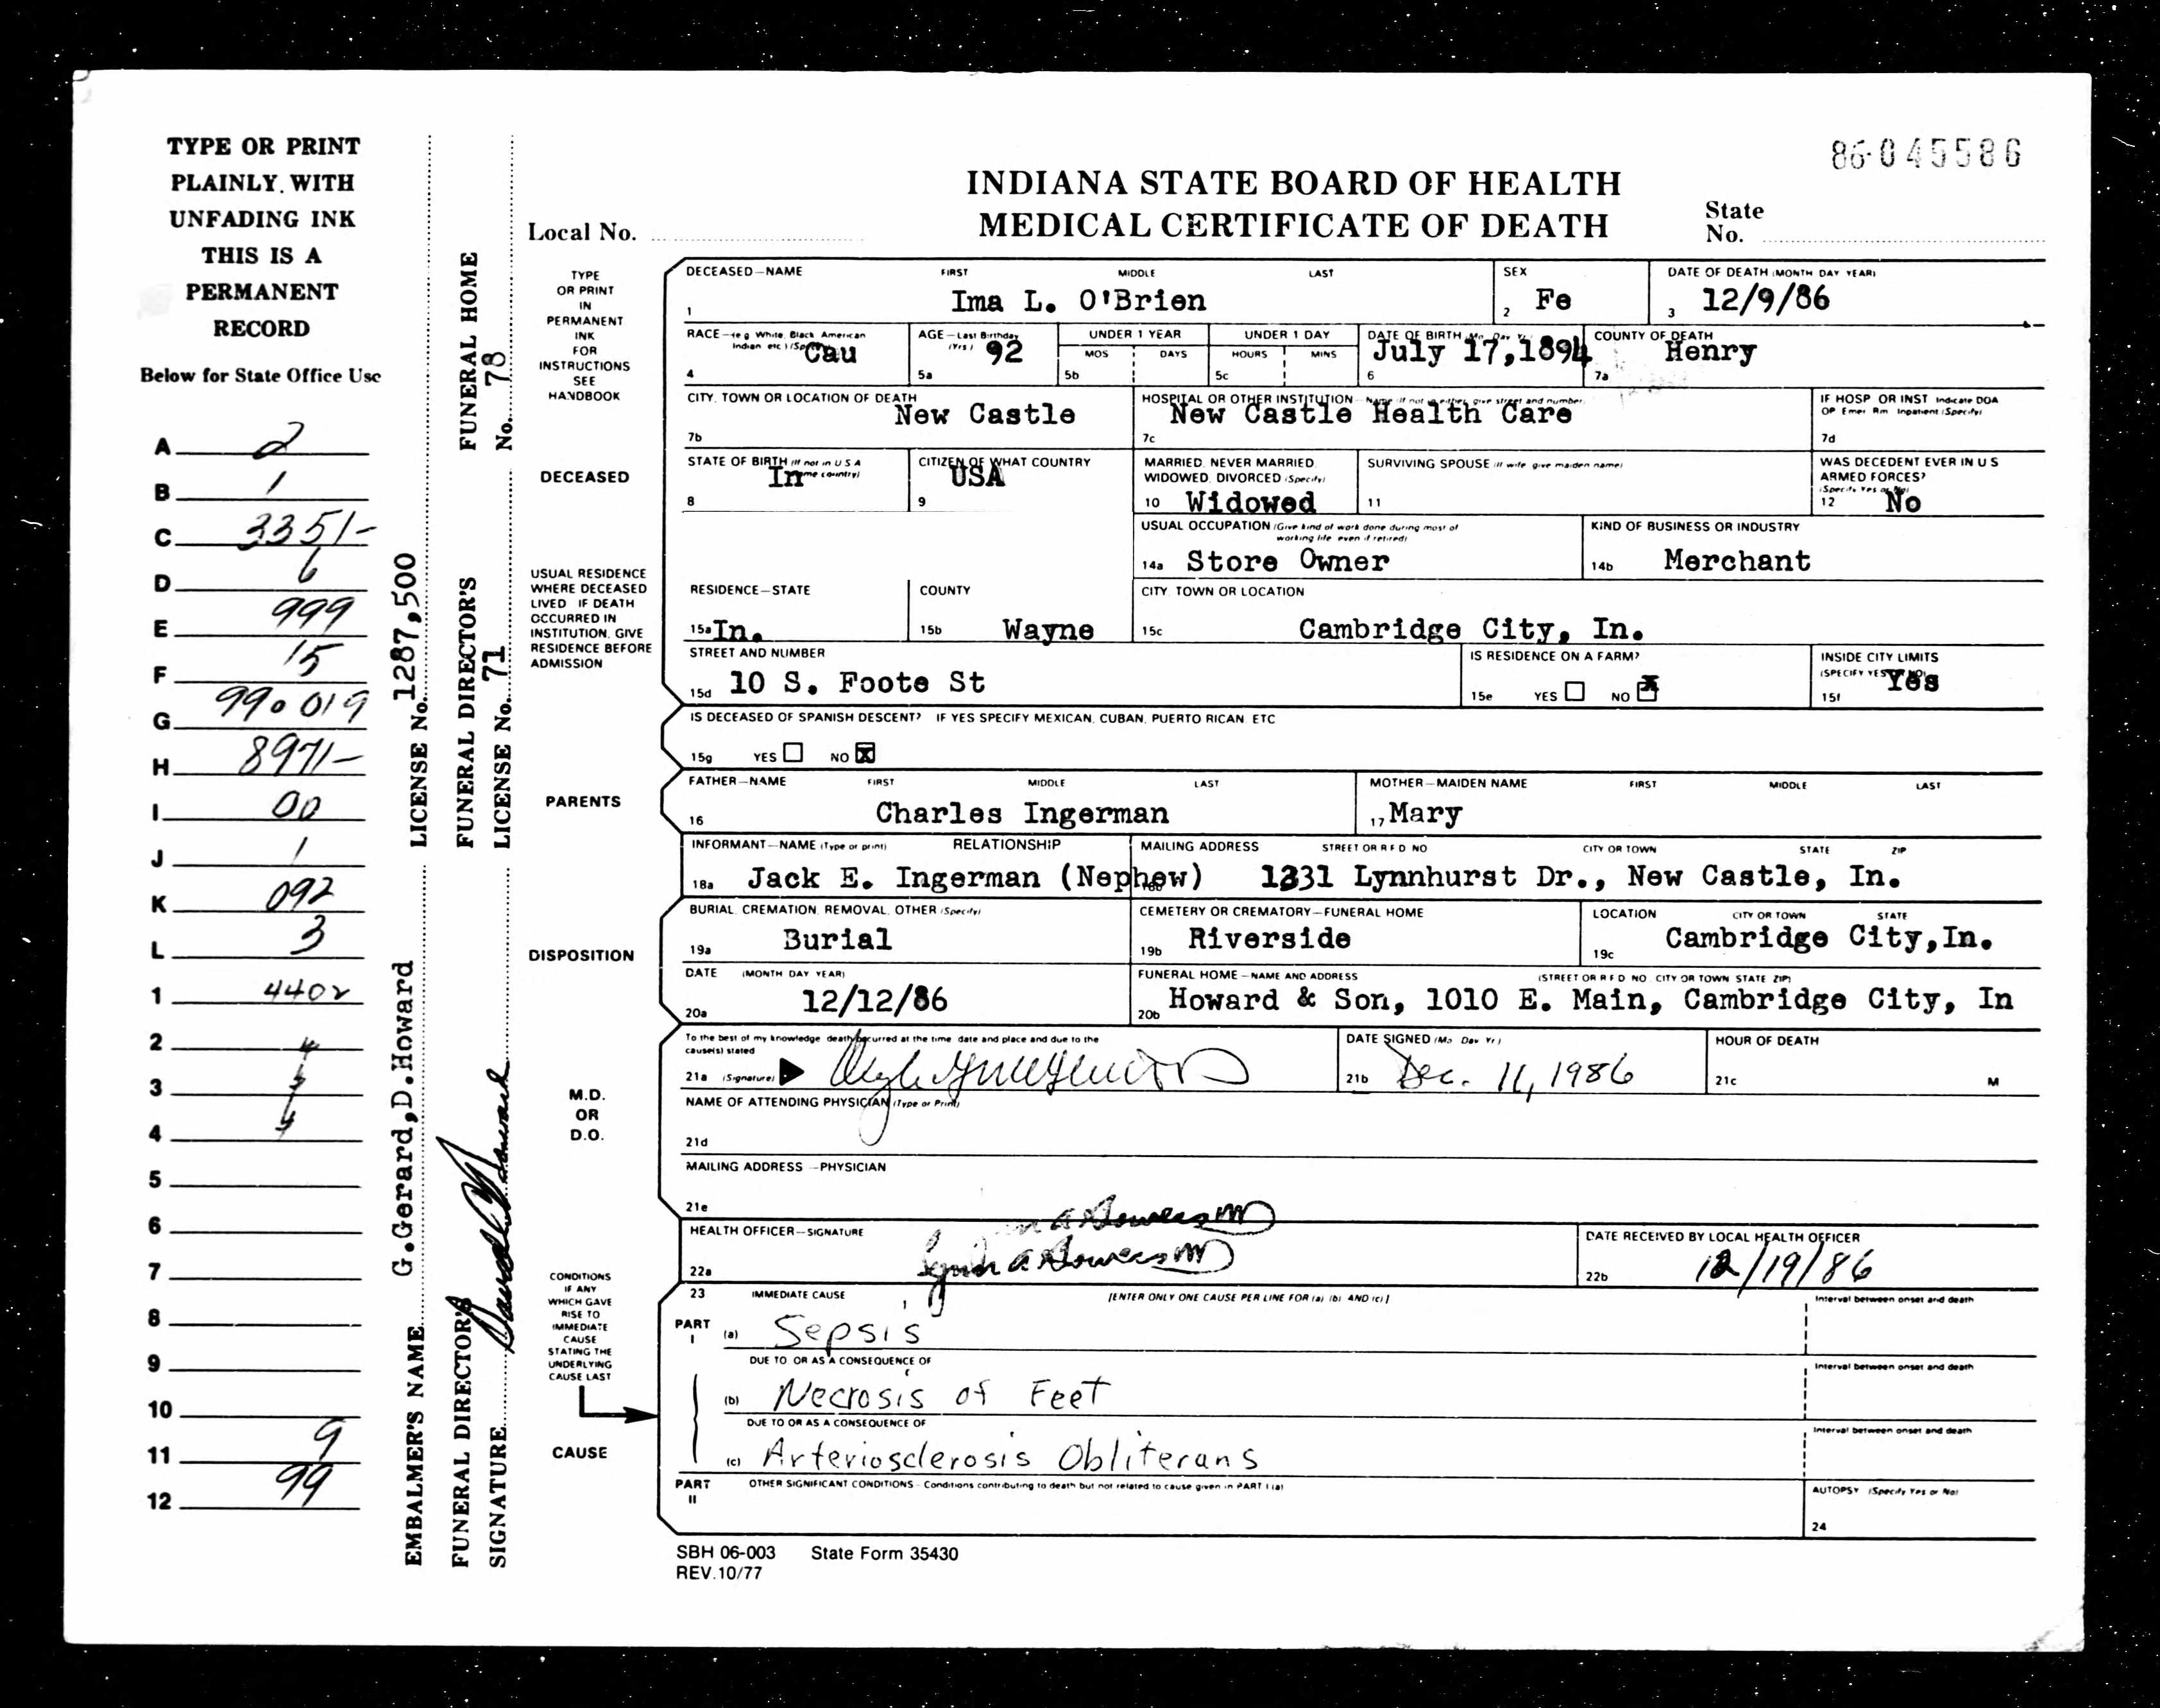 TYPE OR PRINT
PLAINLY, WITH
UNFADING INK
THIS IS A
PERMANENT
RECORD
Below for State Office Use
A 2
B 1
C 3351-
D 6
E 999
F 15
G 990 019
H 8971-
I 00
J 1
K 092
L 3
1 4402
2
3
4
5
6
7
8
9
10
11 9
12 99
EMBALMER'S NAME G.Gerard,D.Howard LICENSE No. 1287,500
FUNERAL DIRECTOR'S FUNERAL DIRECTOR'S FUNERAL HOME
SIGNATURE David Howard LICENSE No. 71 No. 78
86-045586
INDIANA STATE BOARD OF HEALTH
MEDICAL CERTIFICATE OF DEATH
Local No.
State
No.
TYPE
OR PRINT
IN
PERMANENT
INK
FOR
INSTRUCTIONS
SEE
HANDBOOK
DECEASED—NAME FIRST MIDDLE LAST SEX DATE OF DEATH (MONTH DAY YEAR)
1 Ima L. O'Brien 2 Fe 3 12/9/86
RACE—(e g White, Black, American Indian etc ) (Specify) AGE—Last Birthday (Yrs) UNDER 1 YEAR UNDER 1 DAY DATE OF BIRTH (Mo Day Yr) COUNTY OF DEATH
MOS DAYS HOURS MINS
4 Cau 5a 92 5b 5c 6 July 17,1894 7a Henry
CITY, TOWN OR LOCATION OF DEATH HOSPITAL OR OTHER INSTITUTION—Name (If not in either, give street and number) IF HOSP OR INST Indicate DOA
OP Emer Rm Inpatient (Specify)
7b New Castle 7c New Castle Health Care 7d
DECEASED
STATE OF BIRTH (If not in U S A name country) CITIZEN OF WHAT COUNTRY MARRIED, NEVER MARRIED, WIDOWED, DIVORCED (Specify) SURVIVING SPOUSE (If wife give maiden name) WAS DECEDENT EVER IN U S ARMED FORCES? (Specify Yes or No)
8 In 9 USA 10 Widowed 11 12 No
USUAL OCCUPATION (Give kind of work done during most of working life even if retired) KIND OF BUSINESS OR INDUSTRY
14a Store Owner 14b Merchant
USUAL RESIDENCE
WHERE DECEASED
LIVED IF DEATH
OCCURRED IN
INSTITUTION, GIVE
RESIDENCE BEFORE
ADMISSION
RESIDENCE—STATE COUNTY CITY TOWN OR LOCATION
15a In. 15b Wayne 15c Cambridge City, In.
STREET AND NUMBER IS RESIDENCE ON A FARM? INSIDE CITY LIMITS
(SPECIFY YES OR NO)
15d 10 S. Foote St 15e YES NO X 15f Yes
IS DECEASED OF SPANISH DESCENT? IF YES SPECIFY MEXICAN, CUBAN, PUERTO RICAN ETC
15g YES NO X
PARENTS
FATHER—NAME FIRST MIDDLE LAST MOTHER—MAIDEN NAME FIRST MIDDLE LAST
16 Charles Ingerman 17 Mary
INFORMANT—NAME (Type or print) RELATIONSHIP MAILING ADDRESS STREET OR R F D NO CITY OR TOWN STATE ZIP
18a Jack E. Ingerman (Nephew) 18b 1331 Lynnhurst Dr., New Castle, In.
DISPOSITION
BURIAL, CREMATION, REMOVAL, OTHER (Specify) CEMETERY OR CREMATORY—FUNERAL HOME LOCATION CITY OR TOWN STATE
19a Burial 19b Riverside 19c Cambridge City,In.
DATE (MONTH DAY YEAR) FUNERAL HOME—NAME AND ADDRESS (STREET OR R F D NO CITY OR TOWN STATE ZIP)
20a 12/12/86 20b Howard & Son, 1010 E. Main, Cambridge City, In
M.D.
OR
D.O.
To the best of my knowledge death occurred at the time date and place and due to the
cause(s) stated DATE SIGNED (Mo Day Yr) HOUR OF DEATH
21a (Signature) 21b Dec. 11, 1986 21c M
NAME OF ATTENDING PHYSICIAN (Type or Print)
21d
MAILING ADDRESS—PHYSICIAN
21e
HEALTH OFFICER—SIGNATURE DATE RECEIVED BY LOCAL HEALTH OFFICER
22a 22b 12/19/86
CONDITIONS
IF ANY
WHICH GAVE
RISE TO
IMMEDIATE
CAUSE
STATING THE
UNDERLYING
CAUSE LAST
CAUSE
23 IMMEDIATE CAUSE [ENTER ONLY ONE CAUSE PER LINE FOR (a) (b) AND (c)] Interval between onset and death
PART I (a) Sepsis
DUE TO OR AS A CONSEQUENCE OF Interval between onset and death
(b) Necrosis of Feet
DUE TO OR AS A CONSEQUENCE OF Interval between onset and death
(c) Arteriosclerosis Obliterans
PART II OTHER SIGNIFICANT CONDITIONS—Conditions contributing to death but not related to cause given in PART I (a) AUTOPSY (Specify Yes or No)
24
SBH 06-003 State Form 35430
REV.10/77